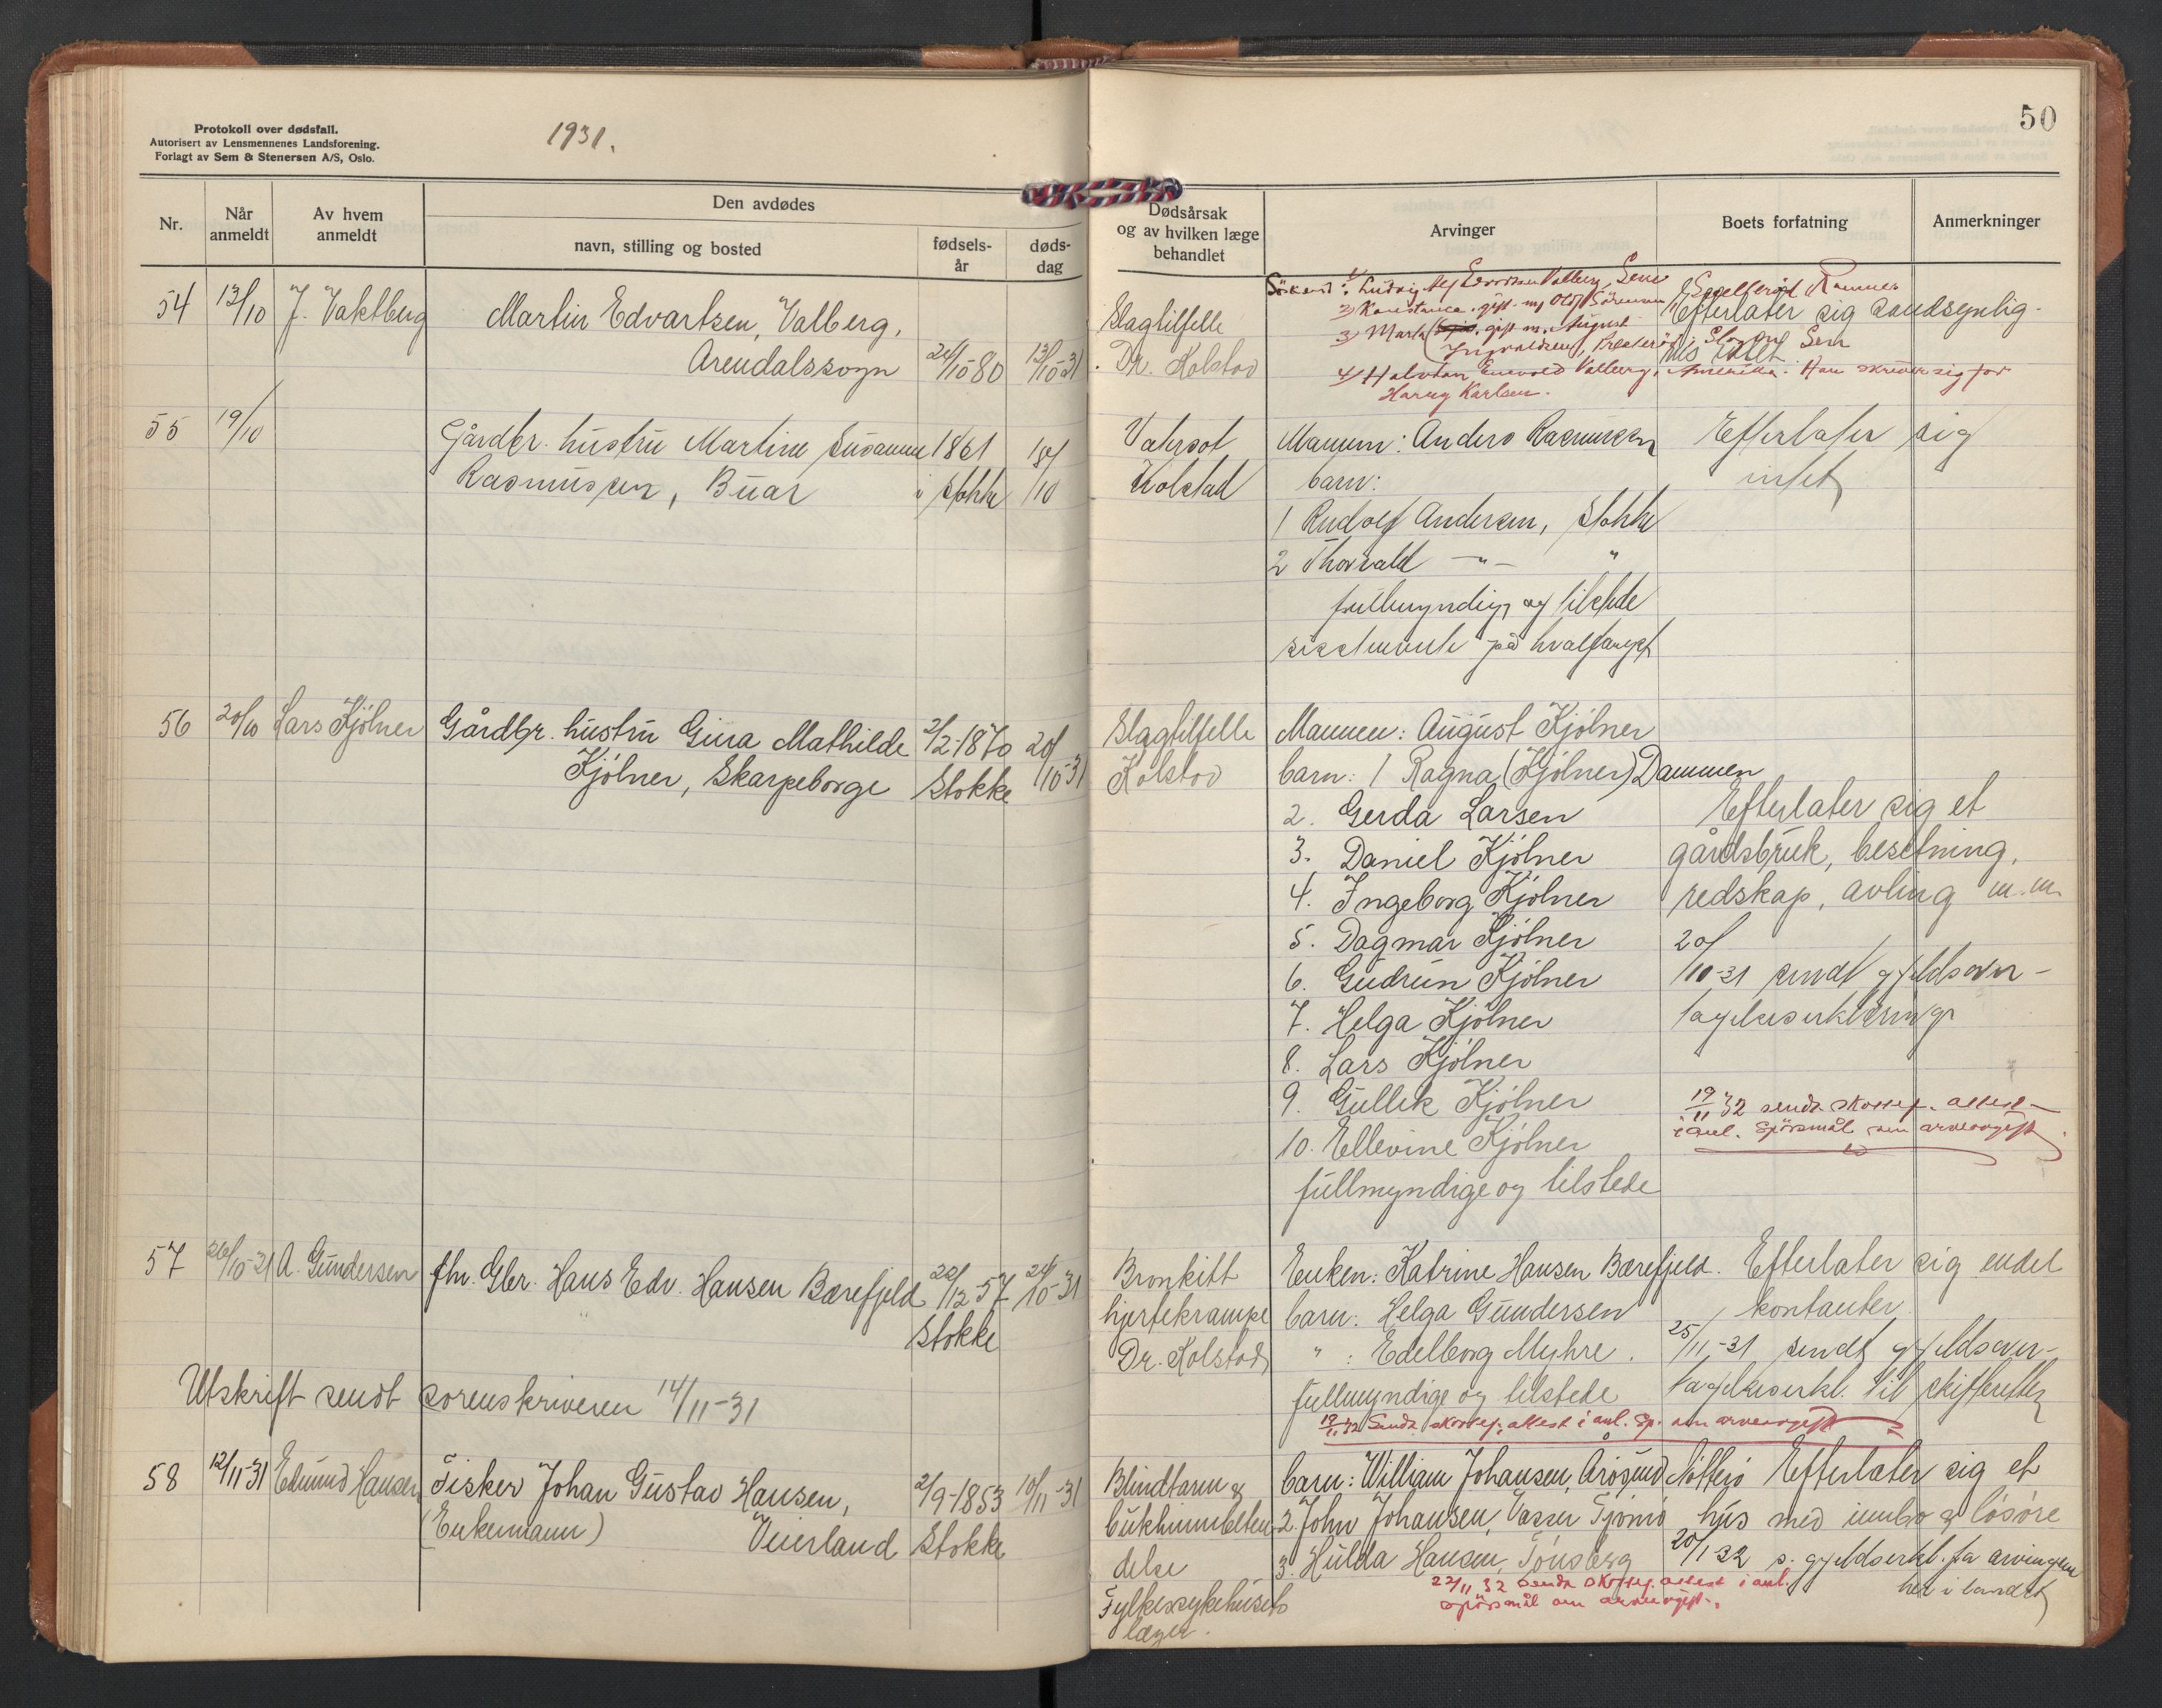 Protokoll over dødsfall.
Autorisert av Lensmennenes Landsforening.
Forlagt av Sem & Stenersen A/S, Oslo.
1931.
50
Nr.
Når anmeldt
Av hvem anmeldt
Den avdødes
navn, stilling og bosted
fødsels-år
døds-dag
Dødsårsak og av hvilken læge behandlet
Arvinger
Boets forfatning
Anmerkninger
54 13/10 J. Vaktberg Martin Edvartsen, Valberg,
Arendalssogn 24/10-80 13/10-31
Slagtilfelle
Dr. Kolstad
2) Konstance, gift m/ Olaf Sörensen
3) Marta gift m. August
4) Halvdan Enevold Valberg, Amerika. Han skriver sig for
Harry Karlsen.
Efterlater sig sandsynlig-
vis intet
55 19/10 Gårdbr. hustru Martine Susanne 1861
Rasmussen, Buar i Stokke /10
Vatersot
Kolstad
Mannen: Anders Rasmussen
barn:
1 Rudolf Andersen, Stokke
2 Thorvald -"- "
fullmyndige og tilstede
sistnevnte på hvalfangst
Efterlater sig
intet
56 20/10 Lars Kjölner Gårdbr. hustru Gina Mathilde 2/2-1870 20/10-31
Kjölner, Skarpeborge Stokke
Slagtilfelle
Kolstad
Mannen: August Kjölner
barn: 1 Ragna (Kjölner) Dammen
2. Gerda Larsen
3. Daniel Kjölner
4. Ingeborg Kjölner
5. Dagmar Kjölner
6. Gudrun Kjölner
7. Helga Kjölner
8. Lars Kjölner
9. Gullik Kjölner
10. Ellevine Kjölner
fullmyndige og tilstede
Efterlater sig et
gårdsbruk, besetning,
redskap, avling m.m.
20/10-31 sendt gjeldsover-
tagelseserklæring
19/11 32 sendt skattef. attest
i anl. spörsmål om arveavgift
57 26/10-31 A. Gundersen fhv. Gbr. Hans Edv. Hansen Bærefjeld 22/12 57 24/10-31
Stokke
Bronkitt
hjertekrampe
Dr. Kolstad
Enken: Katrine Hansen Bærefjeld.
barn: Helga Gundersen
" : Edelborg Myhre.
fullmyndige og tilstede
19/11 32 Sendt skattef. attest i anl. Sp. om arveavgift
Efterlater sig endel
kontanter.
25/11-31 sendt gjeldsover-
tagelseserkl. til skifteretten
Utskrift sendt sorenskriveren 14/11-31
58 12/11-31 Edmund Hansen Fisker Johan Gustav Hansen, 2/9-1853 10/11-31
(Enkemann) Veierland Stokke
Blindtarm &
bukhinnebeten-
delse
Fylkessykehusets
læger.
barn: William Johansen, Årösund Nötterö
2. John Johansen, Vasser Tjömö
3. Hulda Hansen, Tönsberg
22/11 32 Sendt skattef. attest i anl.
spörsmål om arveavgift.
Efterlater sig et
hus med innbo & lösöre
20/1 32 s. gjeldserkl. fra arvingene
her i landet